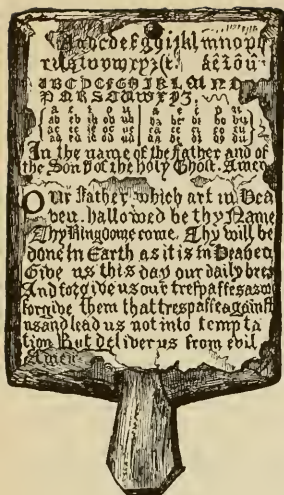 Aabcdefghijklmnopq
ABCDEFGHIKLMNO
a e i o u a e i o u
ab eb ib ob ub ba be bi bo bu
ac ec ic oc uc ca ce ci co cu
ad ed id od ud da de di do du
In the name of the Father and of
the Son & of the Holy Ghost. Amen
Our Father, which art in Hea
ben, hallowed be thy Name
Thy Kingdome come. Thy will be
done in Earth as it is in Heaven.
Give us this day our daily bre
And forgive us our trespasses as we
forgive them that trespasse against
us and lead us not into tempta
tion But deliver us from evil
Amen